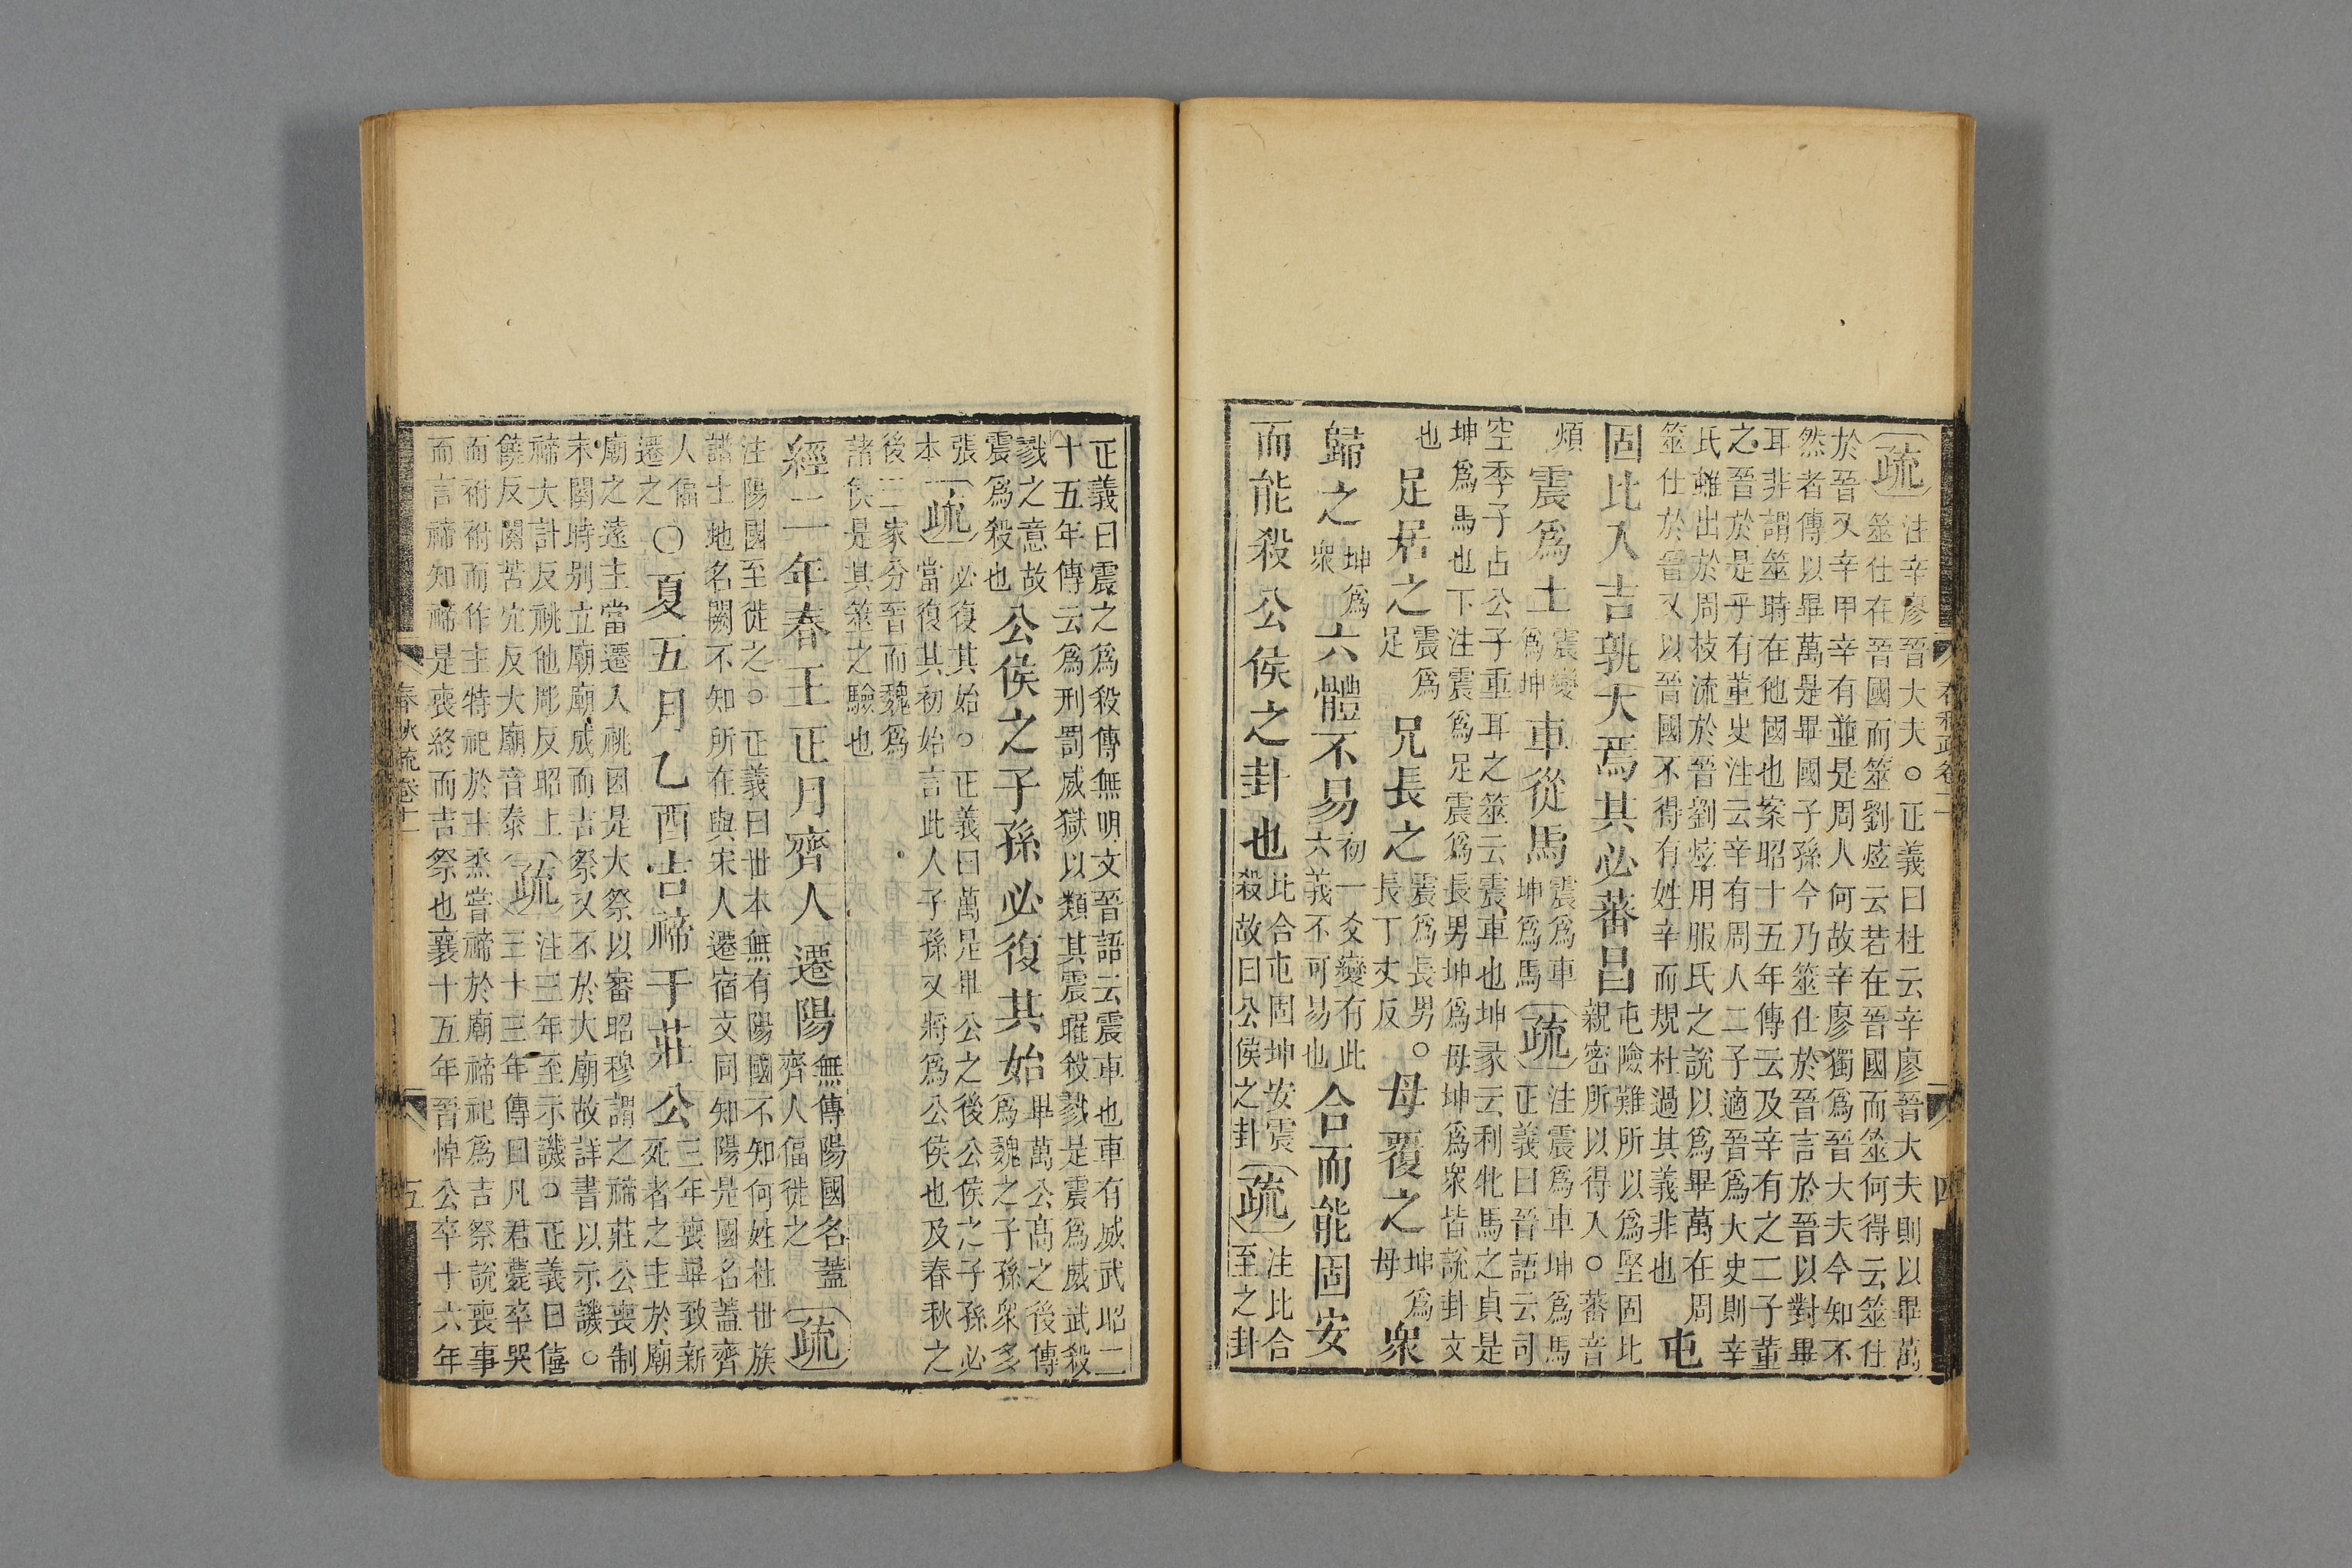 疏注辛廖晉大夫。正義曰杜云辛廖晉大夫則以畢萬
筮仕在晉國而筮劉炫云若在晉國而筮何得云筮仕
於晉又辛甲辛有並是周人何故辛廖獨爲晉大夫今知不
然者傳以畢萬是畢國子孫今乃筮仕於晉言於晉以對畢
耳非謂筮時在他國也案昭十五年傳云及辛有之二子董
之晉於是乎有董史注云辛有周人二子適晉爲大史則辛
氏雖出於周枝流於晉劉炫用服氏之說以爲畢萬在周
筮仕於晉又以晉國不得有姓辛而規杜過其義非也屯
固比入吉孰大焉其必蕃昌屯險難所以爲堅固比親密所以得入。蕃音
煩震爲土震變爲坤車從馬震爲車坤爲馬疏注震爲車坤爲馬正義曰晉語云司
空季子占公子重耳之筮云震車也坤彖云利牝馬之貞是
坤爲馬也下注震爲足震爲長男坤爲母坤爲衆皆說卦文
也足居之震爲足兄長之震爲長男。長丁丈反母覆之坤爲母衆
歸之坤爲衆六體不易初一爻變有此六義不可易也合而能固安
而能殺公侯之卦也比合屯固坤安震殺故曰公侯之卦疏注比合至之卦
正義曰震之爲殺傳無明文晉語云震車也車有威武昭二
十五年傳云爲刑罰威獄以類其震曜殺戮是震爲威武殺
戮之意故震爲殺也公侯之子孫必復其始畢萬公高之後傳爲魏之子孫衆多
張本疏必復其始。正義曰萬是畢公之後公侯之子孫必當復其初始言此人子孫又將爲公侯也及春秋之
後三家分晉而魏爲
諸侯是其筮之驗也
經二年春王正月齊人遷陽無傳陽國名蓋齊人偪徙之疏
注陽國至徙之。正義曰世本無有陽國不知何姓杜世族
譜土地名闕不知所在與宋人遷宿文同知陽是國名蓋齊
人偪遷之〇夏五月乙酉吉禘于莊公三年喪畢致新死者之主於廟
廟之遠主當遷入祧因是大祭以審昭穆謂之禘莊公喪制
未闋時别立廟廟成而吉祭又不於大廟故詳書以示譏。
禘大計反祧他彫反昭上饒反闋苦穴反大廟音泰疏注三年至示譏。正義曰僖三十三年傳曰凡君薨卒哭
而祔祔而作主特祀於主烝嘗禘於廟禘祀爲吉祭說喪事
而言禘知禘是喪終而吉祭也襄十五年晉悼公卒十六年
春秋疏卷十一
五